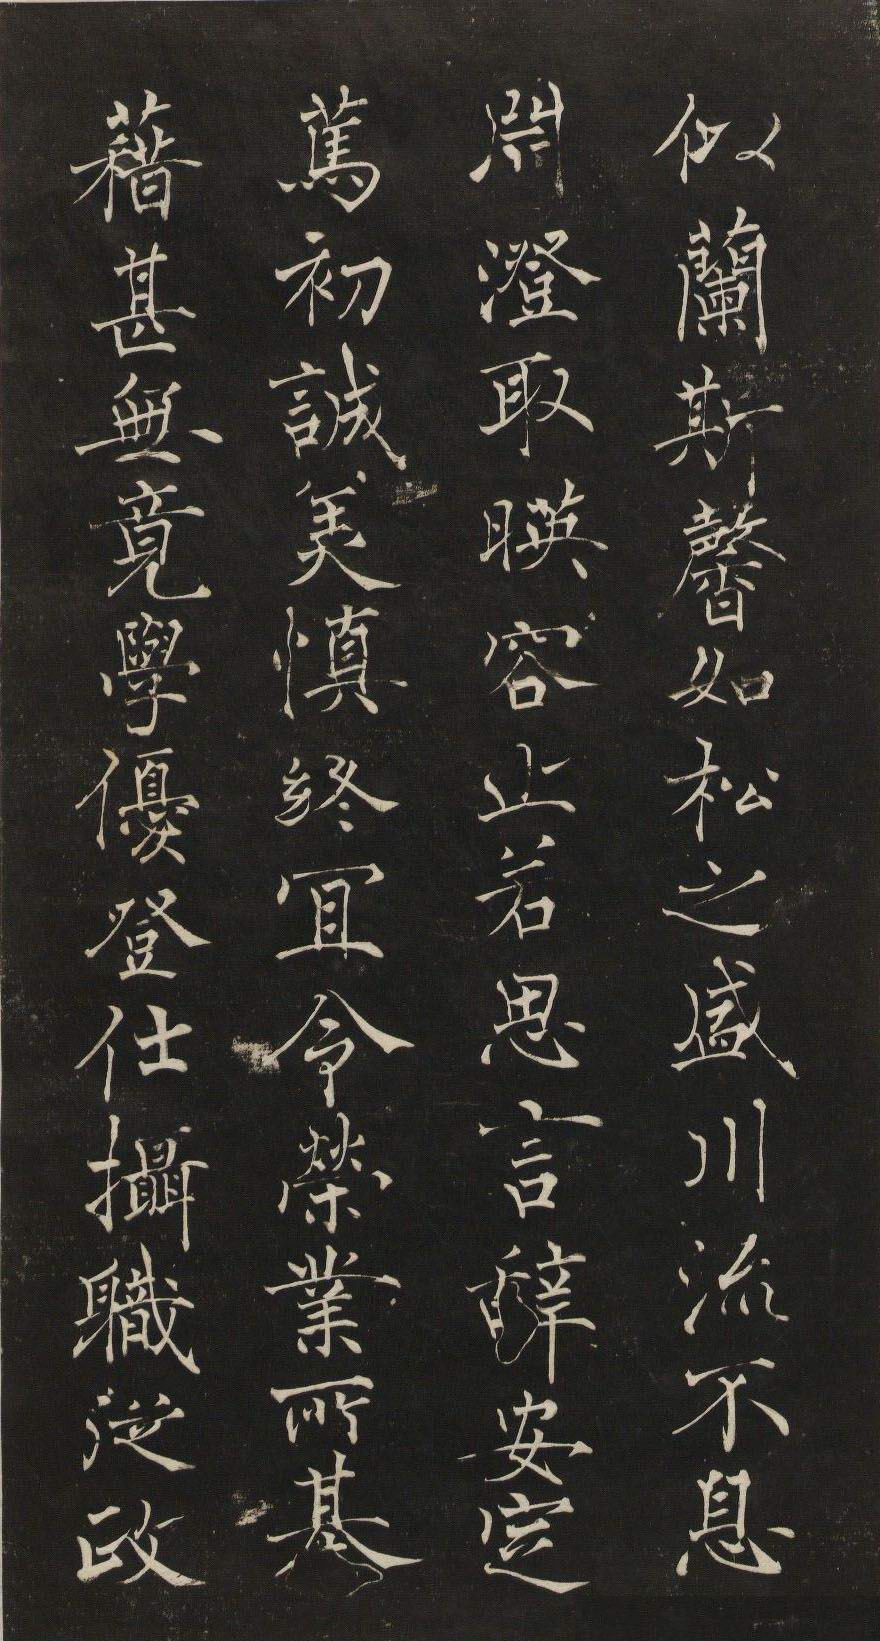 似蘭斯馨如松之盛川流不息
淵澄取暎容止若思言辭安定
篤初誠美慎終宜令榮業所基
藉甚無竟學優登仕攝職從政